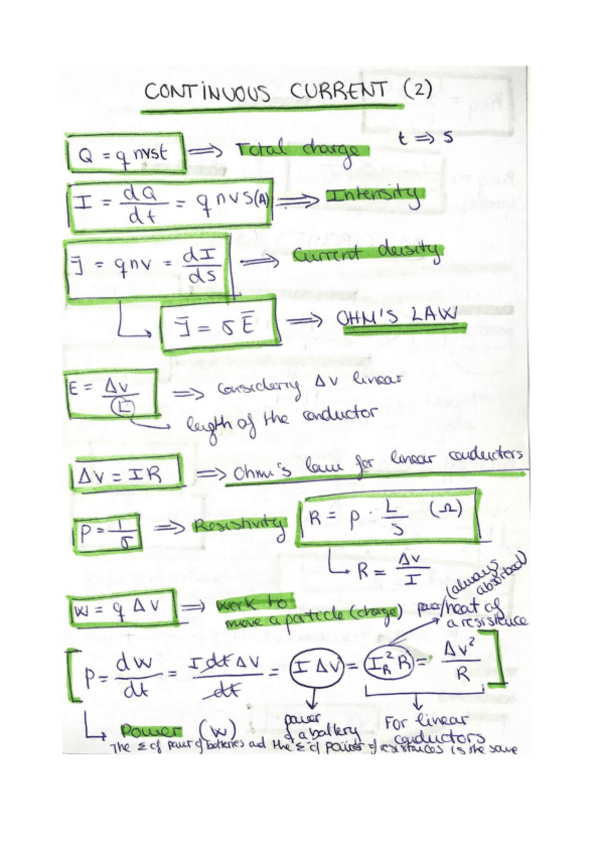 CONTINUOUS CURRENT (2)
Q = q nvst ⇒ Total charge t ⇒ s
I = dQ/dt = q n v s (A) ⇒ Intensity
J̄ = qnv = dI/ds ⇒ Current density
J̄ = σ Ē ⇒ OHM'S LAW
E = Δv/L ⇒ Considering Δv linear
length of the conductor
Δv = I R ⇒ Ohm's law for linear conductors
ρ = 1/σ ⇒ Resistivity R = ρ · L/S (Ω)
R = Δv/I
W = q Δv ⇒ work to
move a particle (charge)
(always absorbed)
/heat of
a resistence
P = dw/dt = Idt Δv/dt = I Δv = I_R² R = Δv²/R
Power (W)
power
of a battery
For linear
conductors
The Σ of power of batteries and the Σ of power of resistances is the same